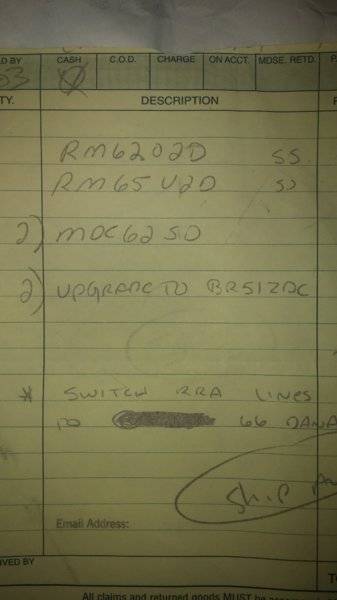 D BY CASH C.O.D. CHARGE ON ACCT. MDSE. RETD. P
53
TY. DESCRIPTION
RM6202D SS
RM65U2D
2) MDC62SD
2) UPGRADE TO BR512DC
* SWITCH RRA LINES
TO 66 DANA
Ship
Email Address:
IVED BY
All claims and returned goods MUST be